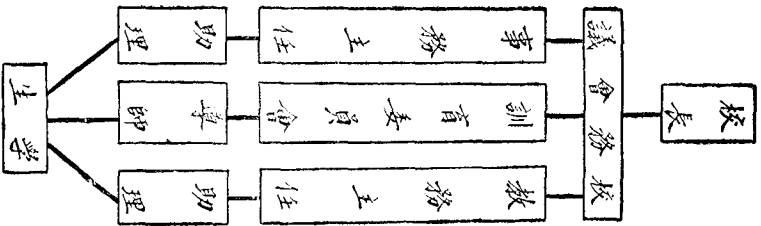 校長
校務會議
教務主任
訓育委員會
事務主任
助理
導師
助理
学生